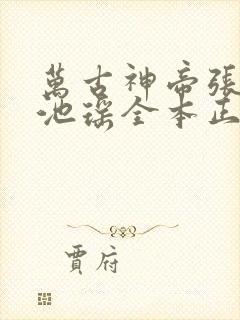 萬古神帝張
池瑤全本正
賈府